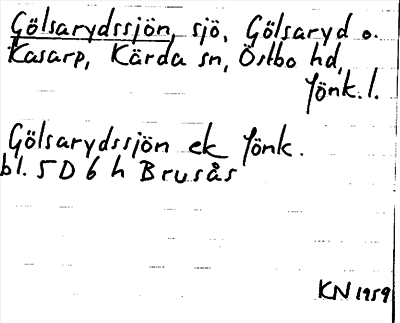 Gölsarydssjön, sjö, Gölsaryd o.
Kasarp, Kärda sn, Östbo hd,
Jönk. l.
Gölsarydssjön ek Jönk.
bl. 5 D 6 h Brusås
KN 1959